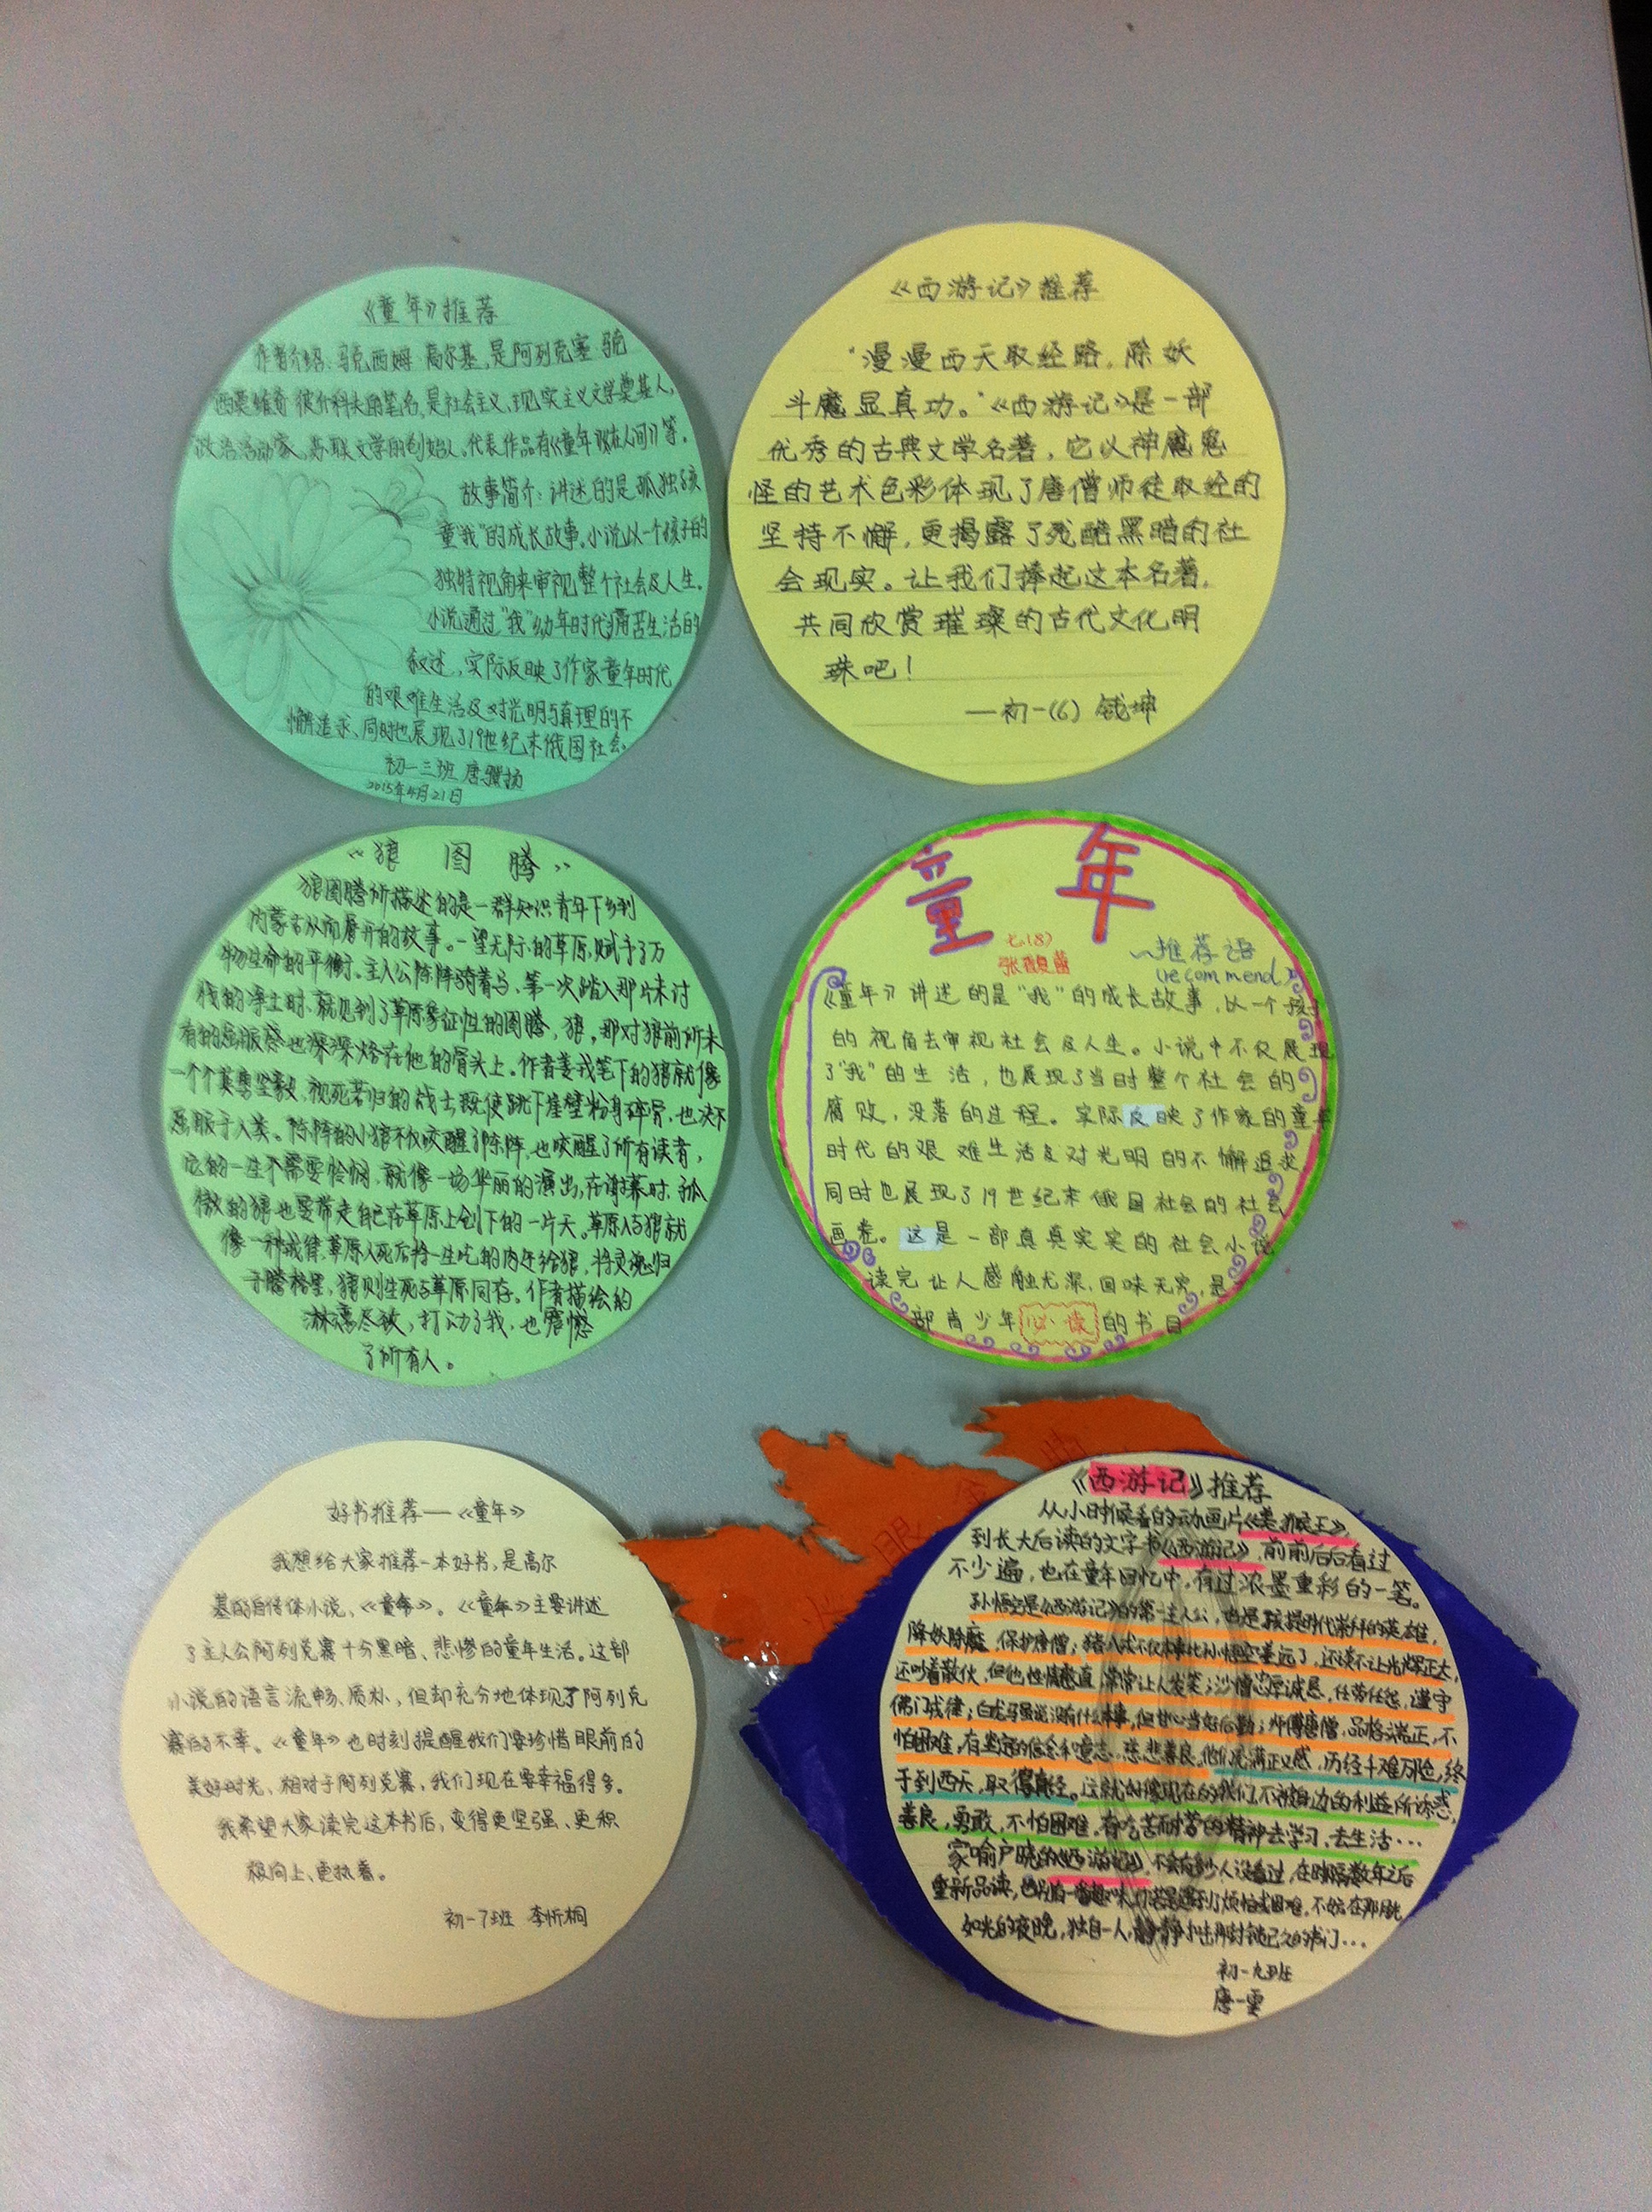 《童年》推荐
作者介绍:马克西姆 高尔基,是阿列克塞 
西莫维奇 彼什科夫的笔名,是社会主义、现实主义文学奠基人,
政治活动家、苏联文学的创始人。代表作品有《童年》《在人间》等。
故事简介:讲述的是孤独孩
童"我"的成长故事。小说以一个孩子的
独特视角来审视整个社会及人生。
小说通过"我"幼年时代痛苦生活的
叙述,实际反映了作家童年时代
的艰难生活及对光明与真理的不
懈追求、同时也展现了19世纪末俄国社会。
初一三班 唐骥扬
2015年4月21日
《西游记》推荐
"漫漫西天取经路,除妖
斗魔显真功。"《西游记》是一部
优秀的古典文学名著,它以神魔鬼
怪的艺术色彩体现了唐僧师徒取经的
坚持不懈,更揭露了残酷黑暗的社
会现实。让我们捧起这本名著,
共同欣赏璀璨的古代文化明
珠吧!
—初一(6) 钱坤
《狼 图 腾》
狼图腾所描述的是一群知识青年下乡到
内蒙古从而展开的故事。一望无际的草原,赋予了万
物生命的平衡。主人公陈阵骑着马、第一次踏入那片未讨
伐的净土时,就见到了草原象征性的图腾,狼。那对狼前所未
有的屈服感也深深烙在他的骨头上。作者姜戎笔下的狼就像
一个个英勇坚毅,视死若归的战士既使跳下崖壁粉身碎骨,也决不
屈服于人类。陈阵的小狼不仅咬醒了陈阵,也咬醒了所有读者,
它的一生不需要怜悯,就像一场华丽的演出,在谢幕时,孤
傲的狼也要带走自己在草原上创下的一片天。草原人与狼就
像一种戒律,草原人死后将一生吃的肉还给狼,将灵魂归
于腾格里,狼则生死与草原同存。作者描绘的
淋漓尽致,打动了我,也震憾
了所有人。
童 年
七(8)
~推荐语
(recommend)
《童年》讲述的是"我"的成长故事,以一个孩子
的视角去审视社会及人生。小说中不仅展现
了"我"的生活,也展现了当时整个社会的
腐败,没落的过程。实际反映了作家的童年
时代的艰难生活及对光明的不懈追求
同时也展现了19世纪末俄国社会的社会
画卷。这是一部真真实实的社会小说
读完让人感触尤深,回味无穷,是
部青少年必读的书目
好书推荐——《童年》
我想给大家推荐一本好书,是高尔
基的自传体小说、《童年》。《童年》主要讲述
了主人公阿列克赛十分黑暗、悲惨的童年生活。这部
小说的语言流畅、质朴,但却充分地体现了阿列克
赛的不幸。《童年》也时刻提醒我们要珍惜眼前的
美好时光、相对于阿列克赛,我们现在要幸福得多。
我希望大家读完这本书后,变得更坚强、更积
极向上、更执着。
初一7班 李忻桐
火眼金睛
《西游记》推荐
从小时候看的动画片《美猴王》,
到长大后读的文字书《西游记》,前前后后看过
不少遍,也在童年回忆中,有过浓墨重彩的一笔。
孙悟空是《西游记》的第一主人公,也是孩提时代崇拜的英雄,
降妖除魔,保护唐僧;猪八戒不仅本事比孙悟空差远了,还谈不上光辉正大,
还叫着散伙,但他性情憨直,常常让人发笑;沙僧忠厚诚恳,任劳任怨,谨守
佛门戒律;白龙马虽说没有什么本事,但甘心当好后勤;师傅唐僧,品格端正,不
怕困难,有坚定的信念和意志,慈悲善良。他们充满正义感,历经千难万险,终
于到西天,取得真经。这就好像现在的我们,不被身边的利益所诱惑,
善良,勇敢,不怕困难,有吃苦耐劳的精神去学习,去生活…
家喻户晓的《西游记》,不会有多少人没看过,在时隔数年之后
重新品读,也别有一番趣味,
如光的夜晚,独自一人,静静
初一九班
唐一雯